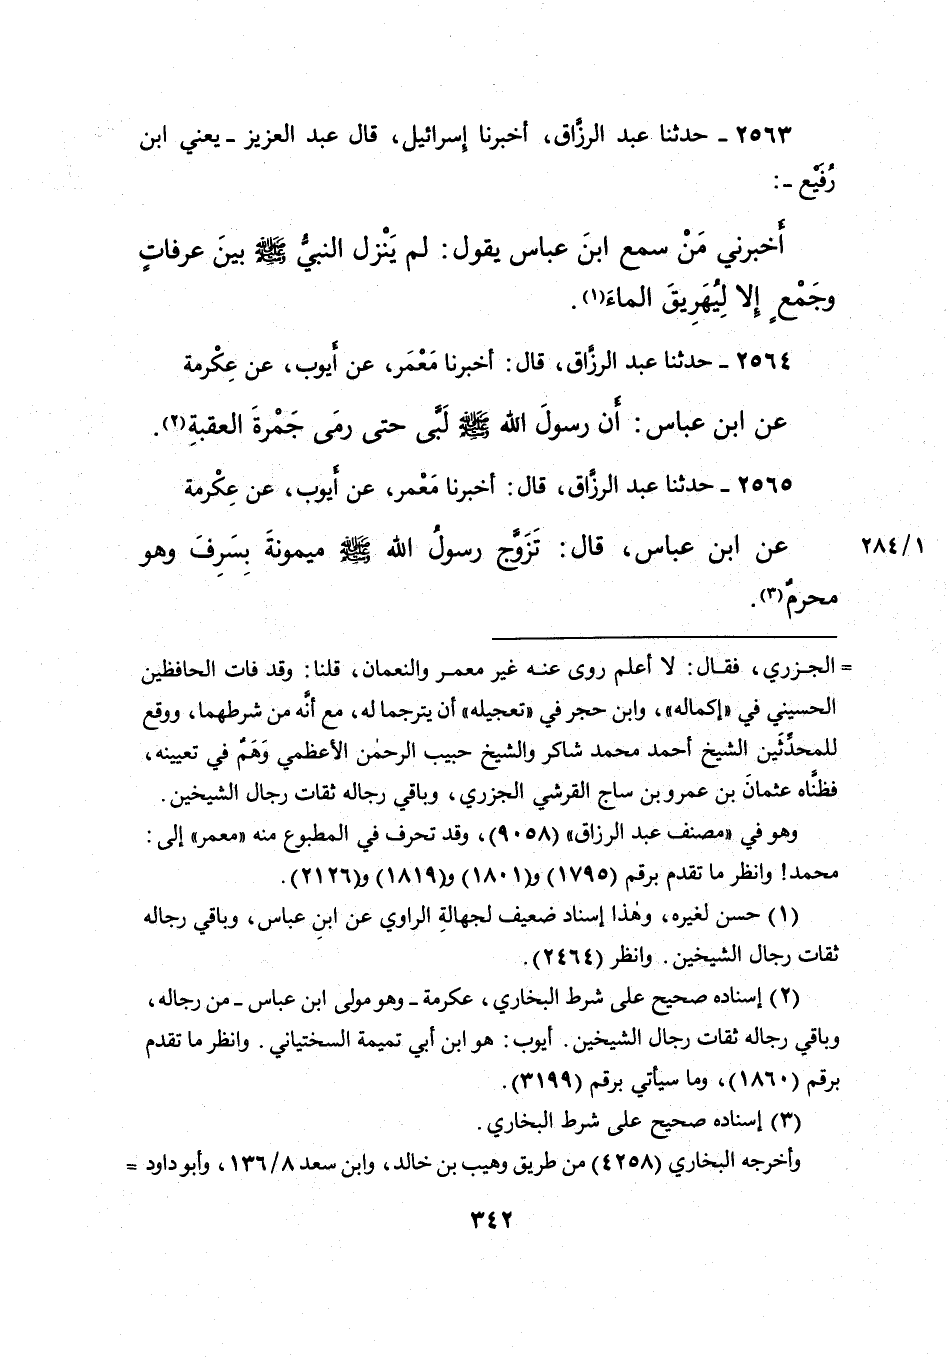 ٢٥٦٣ ـ حدثنا عبد الرزَّاق، أخبرنا إسرائيل، قال عبد العزيز ـ يعني ابن
رُفَيْع ـ:
أَخبرني مَنْ سمع ابنَ عباس يقول: لم يَنْزِل النبيُّ ﷺ بينَ عرفاتٍ
وجَمْعٍ إلا لِيُهَرِيقَ الماءَ(١).
٢٥٦٤ ـ حدثنا عبد الرزَّاق، قال: أخبرنا مَعْمَر، عن أَيوب، عن عِكْرمة
عن ابن عباس: أَن رسولَ الله ﷺ لَبَّى حتى رمَى جَمْرةَ العقبةِ(٢).
٢٥٦٥ ـ حدثنا عبد الرزَّاق، قال: أخبرنا مَعْمر، عن أَيوب، عن عِكْرمة
عن ابن عباس، قال: تَزَوَّج رسولُ الله ﷺ ميمونةَ بِسَرِفَ وهو
٢٨٤/١
محرمٌ(٣).
= الجزري، فقال: لا أعلم روى عنه غير معمر والنعمان، قلنا: وقد فات الحافظين
الحسيني في «إكماله»، وابن حجر في «تعجيله» أن يترجما له، مع أنَّه من شرطهما، ووقع
للمحدِّثَين الشيخ أحمد محمد شاكر والشيخ حبيب الرحمٰن الأعظمي وَهَمٌ في تعيينه،
فظنَّاه عثمانَ بن عمرو بن ساج القرشي الجزري، وباقي رجاله ثقات رجال الشيخين.
وهو في «مصنف عبد الرزاق» (٩٠٥٨)، وقد تحرف في المطبوع منه «معمر» إلى:
محمد! وانظر ما تقدم برقم (١٧٩٥) و(١٨٠١) و(١٨١٩) و(٢١٢٦).
(١) حسن لغيره، وهٰذا إسناد ضعيف لجهالةِ الراوي عن ابنِ عباس، وباقي رجاله
ثقات رجال الشيخين. وانظر (٢٤٦٤).
(٢) إسناده صحيح على شرط البخاري، عكرمة ـ وهو مولى ابن عباس ـ من رجاله،
وباقي رجاله ثقات رجال الشيخين. أيوب: هو ابن أبي تميمة السختياني. وانظر ما تقدم
برقم (١٨٦٠)، وما سيأتي برقم (٣١٩٩).
(٣) إسناده صحيح على شرط البخاري.
وأخرجه البخاري (٤٢٥٨) من طريق وهيب بن خالد، وابن سعد ١٣٦/٨، وأبو داود =
٣٤٢